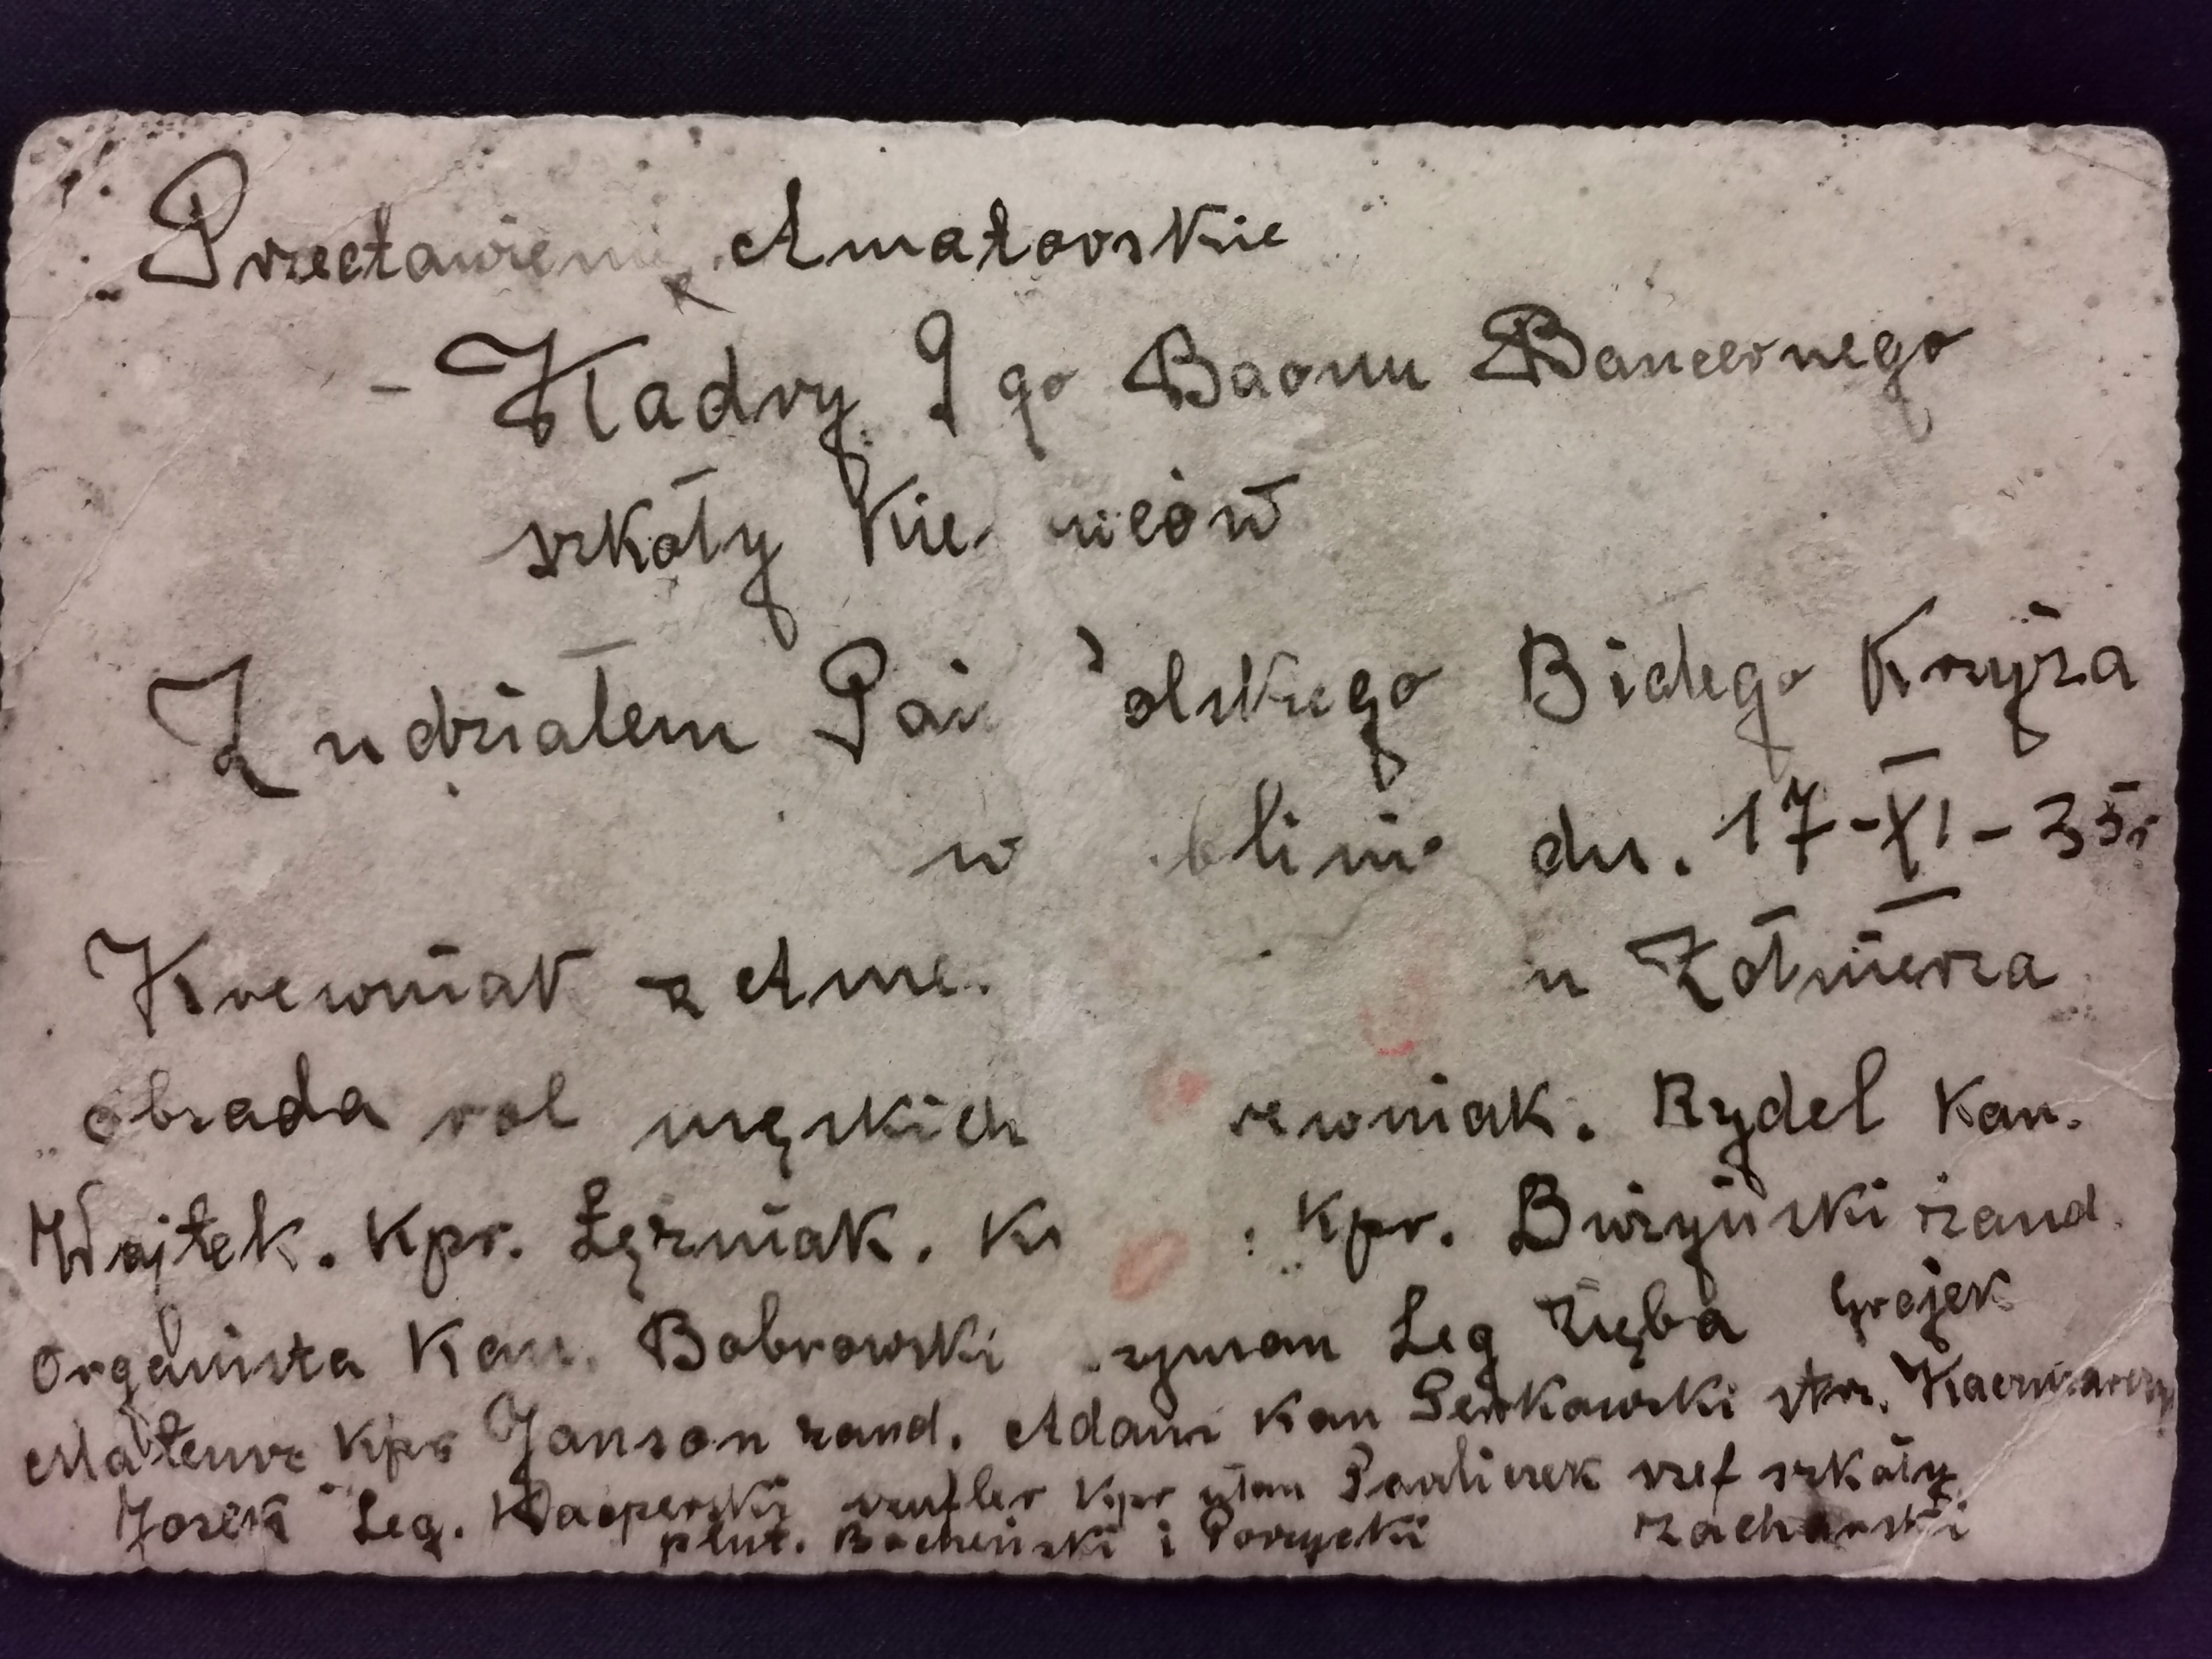 Przectawieni Amatorskie
- Kadry I go Baonu Bancernego
szkoły Kie
Z udziałem Pań olskiego Białego Krzyża
w blinie dn. 17-XI-35r
Krewniak z Ame. u Żołnierza
obsada rol męskich rewniak. Rydel Kan.
Wojtek. Kpr. Łęźniak. Kpr. Burzyński żand.
Organista Kan. Bobrowski zyman Leg Zięba Grojek
Mateusz Kpr Janson żand. Adam Kan Penkowski str.
Josek Leg. Kacperski szufler Kpr ułan Pawliczek szef szkoły
plut. Bocheński i Porzycki Zacharski